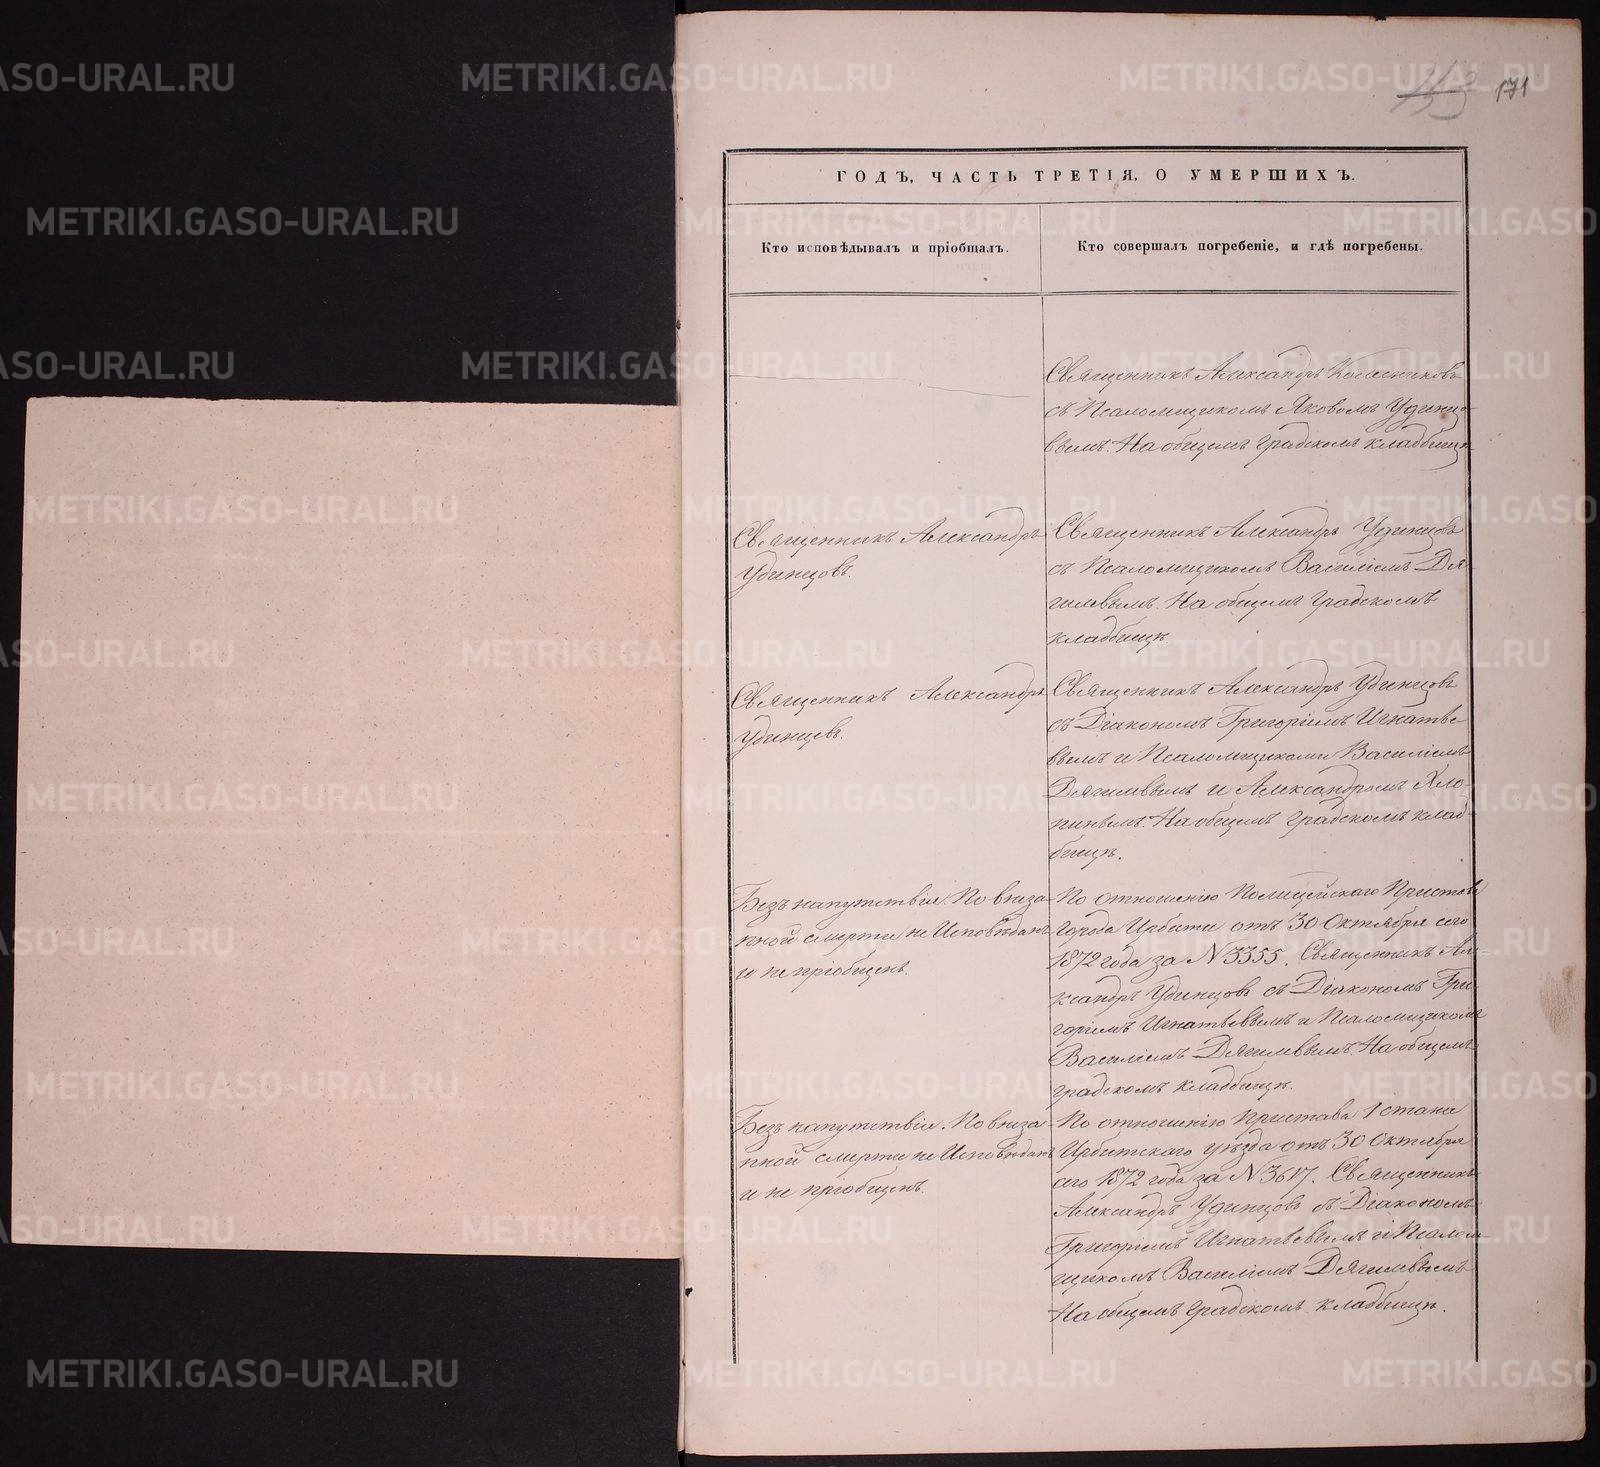 171
ГОДЪ, ЧАСТЬ ТРЕТІЯ, О УМЕРШИХЪ.
Кто исповѣдывалъ и пріобщалъ.
Кто совершалъ погребеніе, и гдѣ погребены.
Священникъ Александръ Колесниковъ
съ Псаломщикомъ Яковомъ Удинцо-
вымъ. На общемъ градскомъ кладбищѣ
Священникъ Александръ
Удинцовъ.
Священникъ Александръ Удинцовъ
съ Псаломщикомъ Василіемъ Дя-
гилевымъ. На общемъ градскомъ
кладбищѣ
Священникъ Александръ
Удинцевъ.
Священникъ Александръ Удинцовъ
съ Діакономъ Григоріемъ Игнатье-
вымъ и Псаломщиками Василіемъ
Дягилевымъ и Александромъ Хло-
пинымъ. На общемъ градскомъ клад-
бищѣ.
Безъ напутствія. По внеза-
пной смерти не Исповѣданъ
и не пріобщенъ.
По отношенію Полицейскаго Пристава
города Ирбити отъ 30 Октября сего
1872 года за N 3355. Священникъ Але-
ксандръ Удинцовъ съ Діакономъ Гри-
горіемъ Игнатьевымъ и Псаломщикомъ
Василіемъ Дягилевымъ. На общемъ
градскомъ кладбищѣ.
Безъ напутствія. По внеза-
пной смерти не Исповѣданъ
и не пріобщенъ.
По отношенію Пристава 1 стана
Ирбитскаго уѣзда отъ 30 Октября
сего 1872 года за N 3617. Священникъ
Александръ Удинцовъ съ Діакономъ
Григоріемъ Игнатьевымъ и Псалом-
щикомъ Василіемъ Дягилевымъ
На общемъ градскомъ кладбищѣ.
METRIKI.GASO-URAL.RU